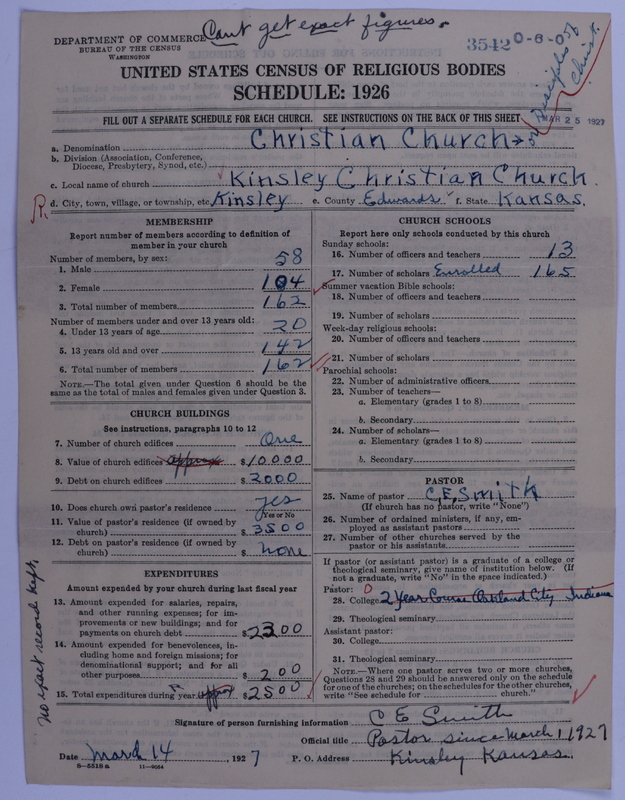 Cant get exact figures.
DEPARTMENT OF COMMERCE
BUREAU OF THE CENSUS
WASHINGTON
3542 0-6-0
Disciples of Christ.
UNITED STATES CENSUS OF RELIGIOUS BODIES
SCHEDULE: 1926
FILL OUT A SEPARATE SCHEDULE FOR EACH CHURCH. SEE INSTRUCTIONS ON THE BACK OF THIS SHEET
MAR 25 1927
a. Denomination Christian Church → or
b. Division (Association, Conference, Diocese, Presbytery, Synod, etc.)
c. Local name of church Kinsley Christian Church.
d. City, town, village, or township, etc. Kinsley e. County Edwards f. State Kansas.
MEMBERSHIP
Report number of members according to definition of member in your church
Number of members, by sex:
1. Male 58
2. Female 104
3. Total number of members 162
Number of members under and over 13 years old:
4. Under 13 years of age 20
5. 13 years old and over 142
6. Total number of members 162
NOTE.—The total given under Question 6 should be the same as the total of males and females given under Question 3.
CHURCH BUILDINGS
See instructions, paragraphs 10 to 12
7. Number of church edifices One
8. Value of church edifices approx $10000
9. Debt on church edifices $2000
10. Does church own pastor's residence yes
Yes or No
11. Value of pastor's residence (if owned by church) $3500
12. Debt on pastor's residence (if owned by church) $none
EXPENDITURES
Amount expended by your church during last fiscal year
13. Amount expended for salaries, repairs, and other running expenses; for improvements or new buildings; and for payments on church debt $2300
14. Amount expended for benevolences, including home and foreign missions; for denominational support; and for all other purposes $200
15. Total expenditures during year approx $2500
no exact record kept.
CHURCH SCHOOLS
Report here only schools conducted by this church
Sunday schools:
16. Number of officers and teachers 13
17. Number of scholars Enrolled 165
Summer vacation Bible schools:
18. Number of officers and teachers
19. Number of scholars
Week-day religious schools:
20. Number of officers and teachers
21. Number of scholars
Parochial schools:
22. Number of administrative officers
23. Number of teachers—
a. Elementary (grades 1 to 8)
b. Secondary
24. Number of scholars—
a. Elementary (grades 1 to 8)
b. Secondary
PASTOR
25. Name of pastor C.E. Smith
(If church has no pastor, write "None")
26. Number of ordained ministers, if any, employed as assistant pastors
27. Number of other churches served by the pastor or his assistants
If pastor (or assistant pastor) is a graduate of a college or theological seminary, give name of institution below. (If not a graduate, write "No" in the space indicated.)
Pastor: 0
28. College 2 Year Course Oakland City Indiana
29. Theological seminary
Assistant pastor:
30. College
31. Theological seminary
NOTE.—Where one pastor serves two or more churches, Questions 28 and 29 should be answered only on the schedule for one of the churches; on the schedules for the other churches, write "See schedule for church."
Signature of person furnishing information C E Smith
Official title Pastor since March 1 1927
Date March 14, 1927 P. O. Address Kinsley Kansas.
8—5518 a 11—9064